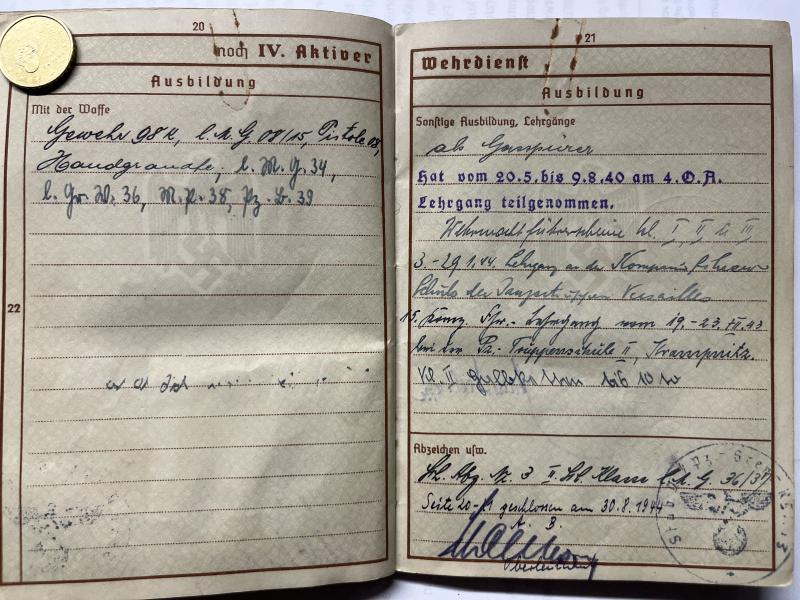 20
noch IV. Aktiver
Ausbildung
Mit der Waffe
Gewehr 98k, l. M. G 08/15, Pistole 08,
Handgranate, l. M. G. 34,
l. Gr. W. 36, M. P. 38, Pz. B. 39
22
21
Wehrdienst
Ausbildung
Sonstige Ausbildung, Lehrgänge
als Gasspürer
Hat vom 20.5. bis 9.8.40 am 4. O.A.
Lehrgang teilgenommen.
Wehrmachtführerscheine kl. I, II u III
3.-29 1.44 Lehrgang an der
Schule der Panzertruppen Versailles
15. Komp. Fhr.- Lehrgang vom 19.-23. VII. 43
bei der Pz.- Truppenschule II, Krampnitz.
Kl. II bis 10 to
Abzeichen usw.
Nr. 3 II. Klasse l. M. G 36/37
Seite 20-21 geschlossen am 30.8.1944
A. B.
Oberleutnant